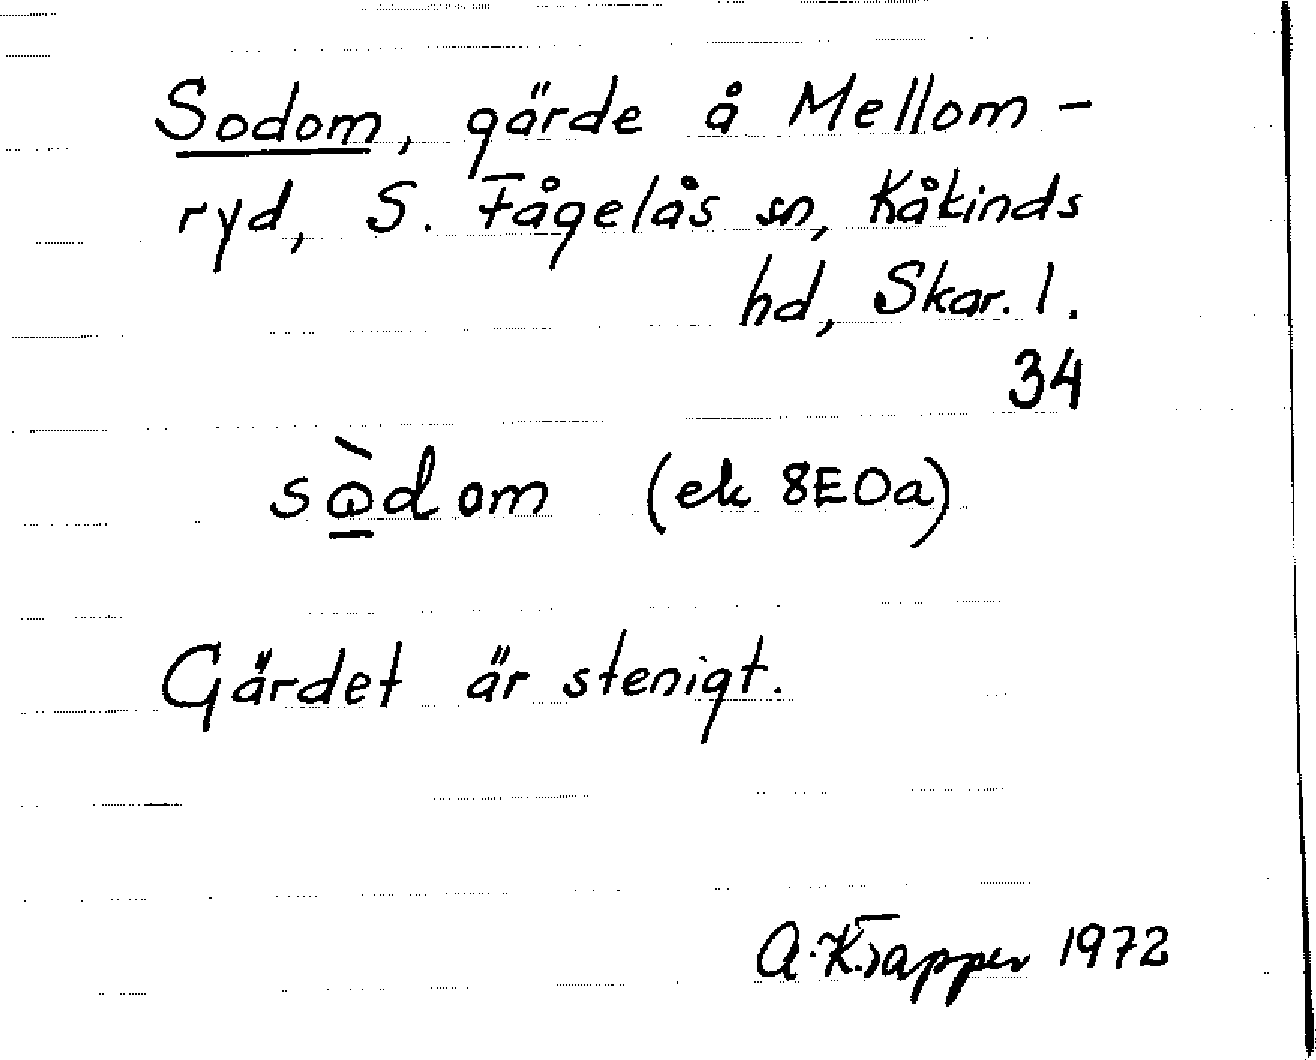 Sodom, gärde å Mellom-
ryd, S. Fågelås sn, Kåkinds
hd, Skar. l.
34
sὼdom (ek 8E0a)
Gärdet är stenigt.
A. Krapper 1972